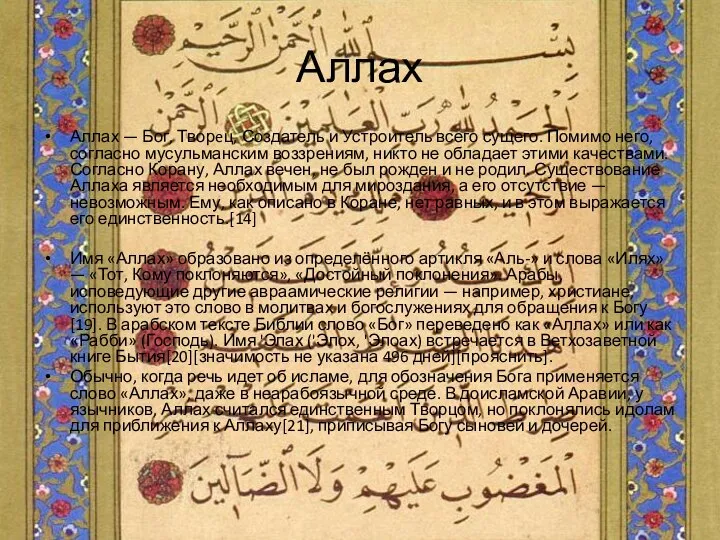 بِسْمِ اللهِ الرَّحْمٰنِ الرَّحِيمِ
Аллах
الْحَمْدُ لِلّٰهِ رَبِّ الْعَالَمِينَ الرَّحْمٰنِ
• Аллах — Бог, Творец, Создатель и Устроитель всего сущего. Помимо него,
согласно мусульманским воззрениям, никто не обладает этими качествами.
Согласно Корану, Аллах вечен, не был рожден и не родил. Существование
Аллаха является необходимым для мироздания, а его отсутствие —
невозможным. Ему, как описано в Коране, нет равных, и в этом выражается
его единственность.[14]
• Имя «Аллах» образовано из определённого артикля «Аль-» и слова «Илях»
— «Тот, Кому поклоняются», «Достойный поклонения». Арабы,
исповедующие другие авраамические религии — например, христиане,
используют это слово в молитвах и богослужениях для обращения к Богу
[19]. В арабском тексте Библии слово «Бог» переведено как «Аллах» или как
«Рабби» (Господь). Имя 'Элах ('Элох, 'Элоах) встречается в Ветхозаветной
книге Бытия[20][значимость не указана 496 дней][прояснить].
• Обычно, когда речь идет об исламе, для обозначения Бога применяется
слово «Аллах»; даже в неарабоязычной среде. В доисламской Аравии, у
язычников, Аллах считался единственным Творцом, но поклонялись идолам
для приближения к Аллаху[21], приписывая Богу сыновей и дочерей.
الْمَغْضُوبِ عَلَيْهِمْ وَلَا الضَّالِّينَ